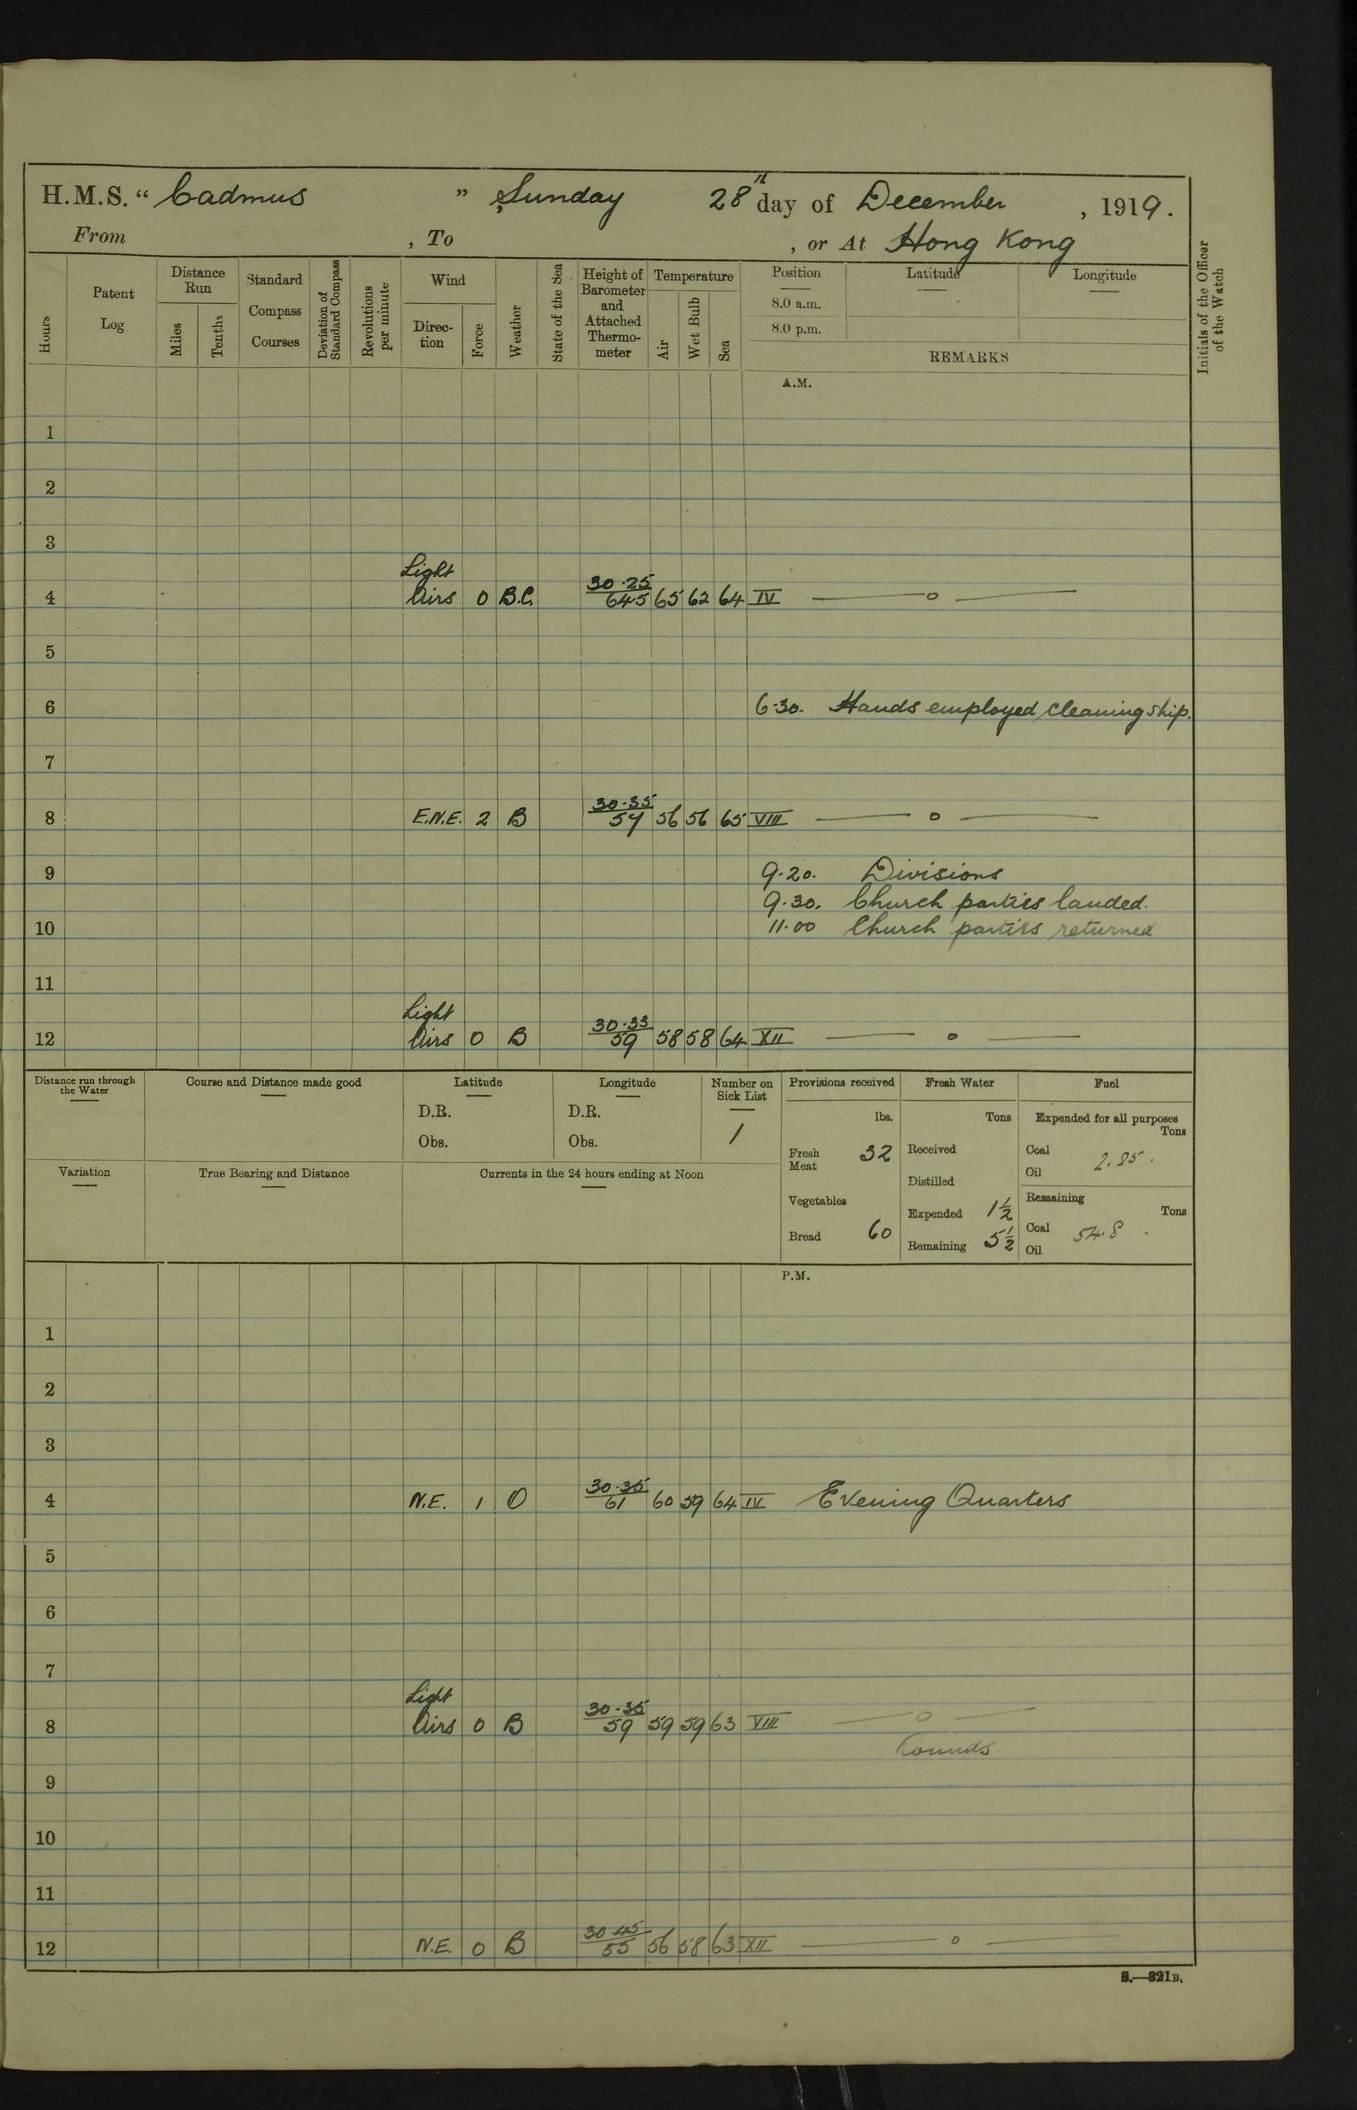 H.M.S. “ Cadmus ” Sunday 28th day of December , 1919.
From , To , or At Hong Kong
Hours
Patent Log
Distance Run
Miles
Tenths
Standard Compass Courses
Deviation of Standard Compass
Revolutions per minute
Wind
Direc- tion
Force
Weather
State of the Sea
Height of Barometer and Attached Thermo- meter
Temperature
Air
Wet Bulb
Sea
Position
8.0 a.m.
8.0 p.m.
Latitude
Longitude
REMARKS
Initials of the Officer of the Watch
A.M.
1
2
3
4 Light Airs 0 B.C. 30.25 645 65 62 64 IV — o —
5
6 6.30. Hands employed cleaning ship.
7
8 E.N.E. 2 B 30.35 54 56 56 65 VIII — o —
9 9.20. Divisions
9.30. Church parties landed.
10 11.00 Church parties returned
11
12 Light Airs 0 B 30.33 59 58 58 64 XII — o —
Distance run through the Water
Course and Distance made good
Latitude
D.R.
Obs.
Longitude
D.R.
Obs.
Number on Sick List
1
Provisions received
lbs.
Fresh Meat 32
Vegetables
Bread 60
Fresh Water
Tons
Received
Distilled
Expended 1½
Remaining 5½
Fuel
Expended for all purposes
Tons
Coal 2.85.
Oil
Remaining
Tons
Coal 54.8
Oil
Variation
True Bearing and Distance
Currents in the 24 hours ending at Noon
P.M.
1
2
3
4 N.E. 1 O 30.35 61 60 59 64 IV Evening Quarters
5
6
7
8 Light Airs 0 B 30.35 59 59 59 63 VIII — o —
Rounds
9
10
11
12 N.E. 0 B 30 45 55 56 58 63 XII — o —
S.—321B.